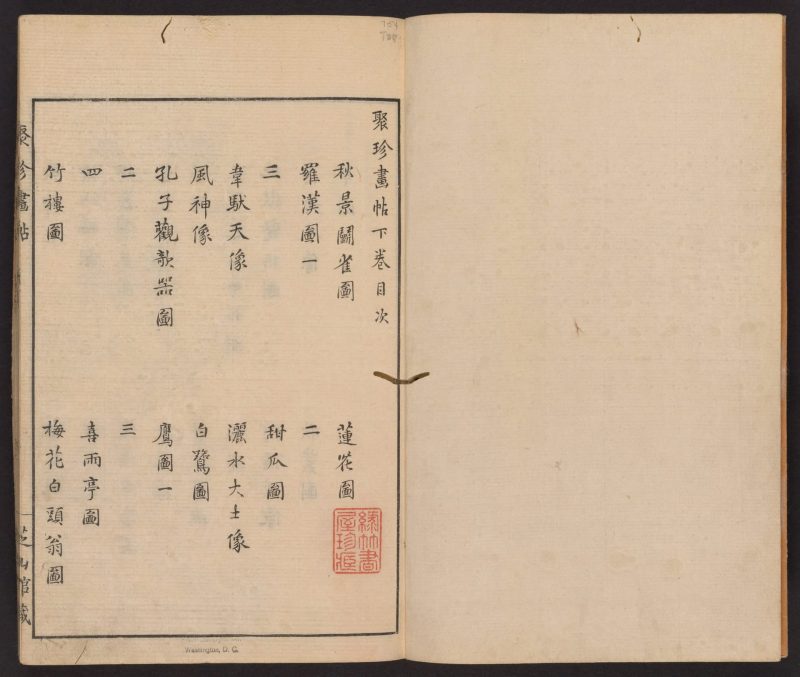 聚珍畫帖下卷目次
秋景鬪雀圖 蓮花圖
羅漢圖一 二
三 甜瓜圖
韋馱天像 灑水大士像
風神像 白鷺圖
孔子觀欹器圖 鷹圖一
二 三
四 喜雨亭圖
竹樓圖 梅花白頭翁圖
聚珍畫帖 芝山館藏
綠竹書
屋珍藏
Washington, D. C.